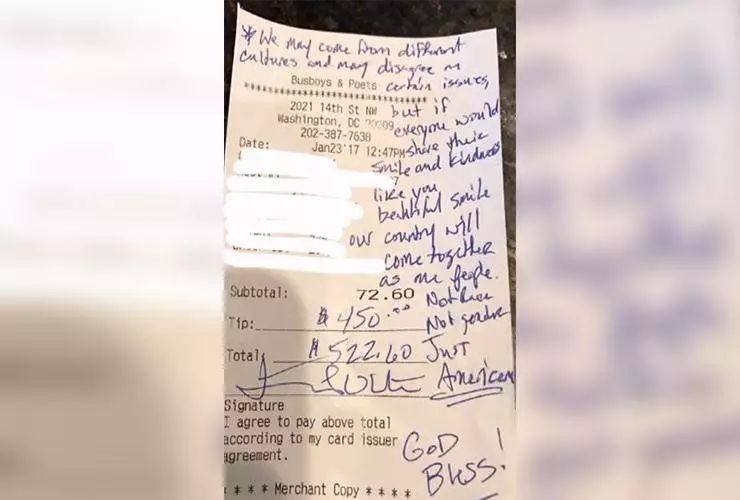 * We may come from different
cultures and may disagree on
Busboys & Poets certain issues,
2021 14th St NW but if
Washington, DC 20009 everyone would
202-387-7638
Date: Jan23'17 12:47PM share their
smile and kindness
7
like you
beautiful smile
our country will
come together
as one people.
Subtotal: 72.60 Not Race
Tip: $ 450.00 Not gender
Total: $ 522.60 Just
American
Signature
I agree to pay above total
according to my card issuer
agreement.
GOD
Bless!
* * * * Merchant Copy * * * *